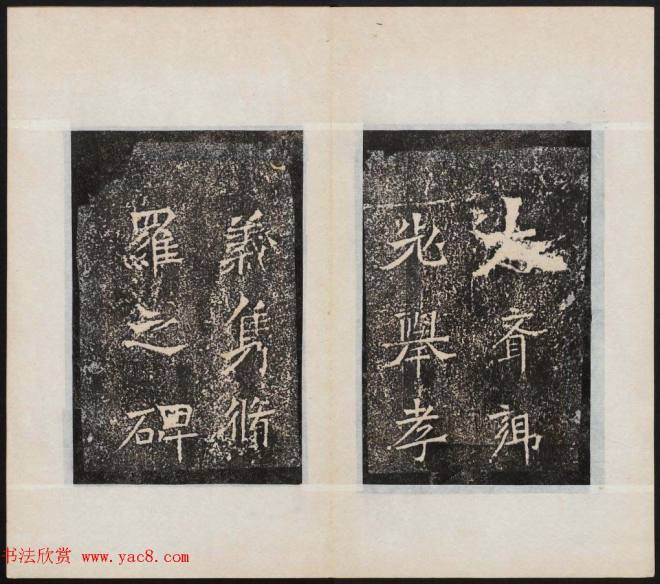 大齊鄉
老舉孝
義雋脩
羅之碑
书法欣赏 www.yac8.com